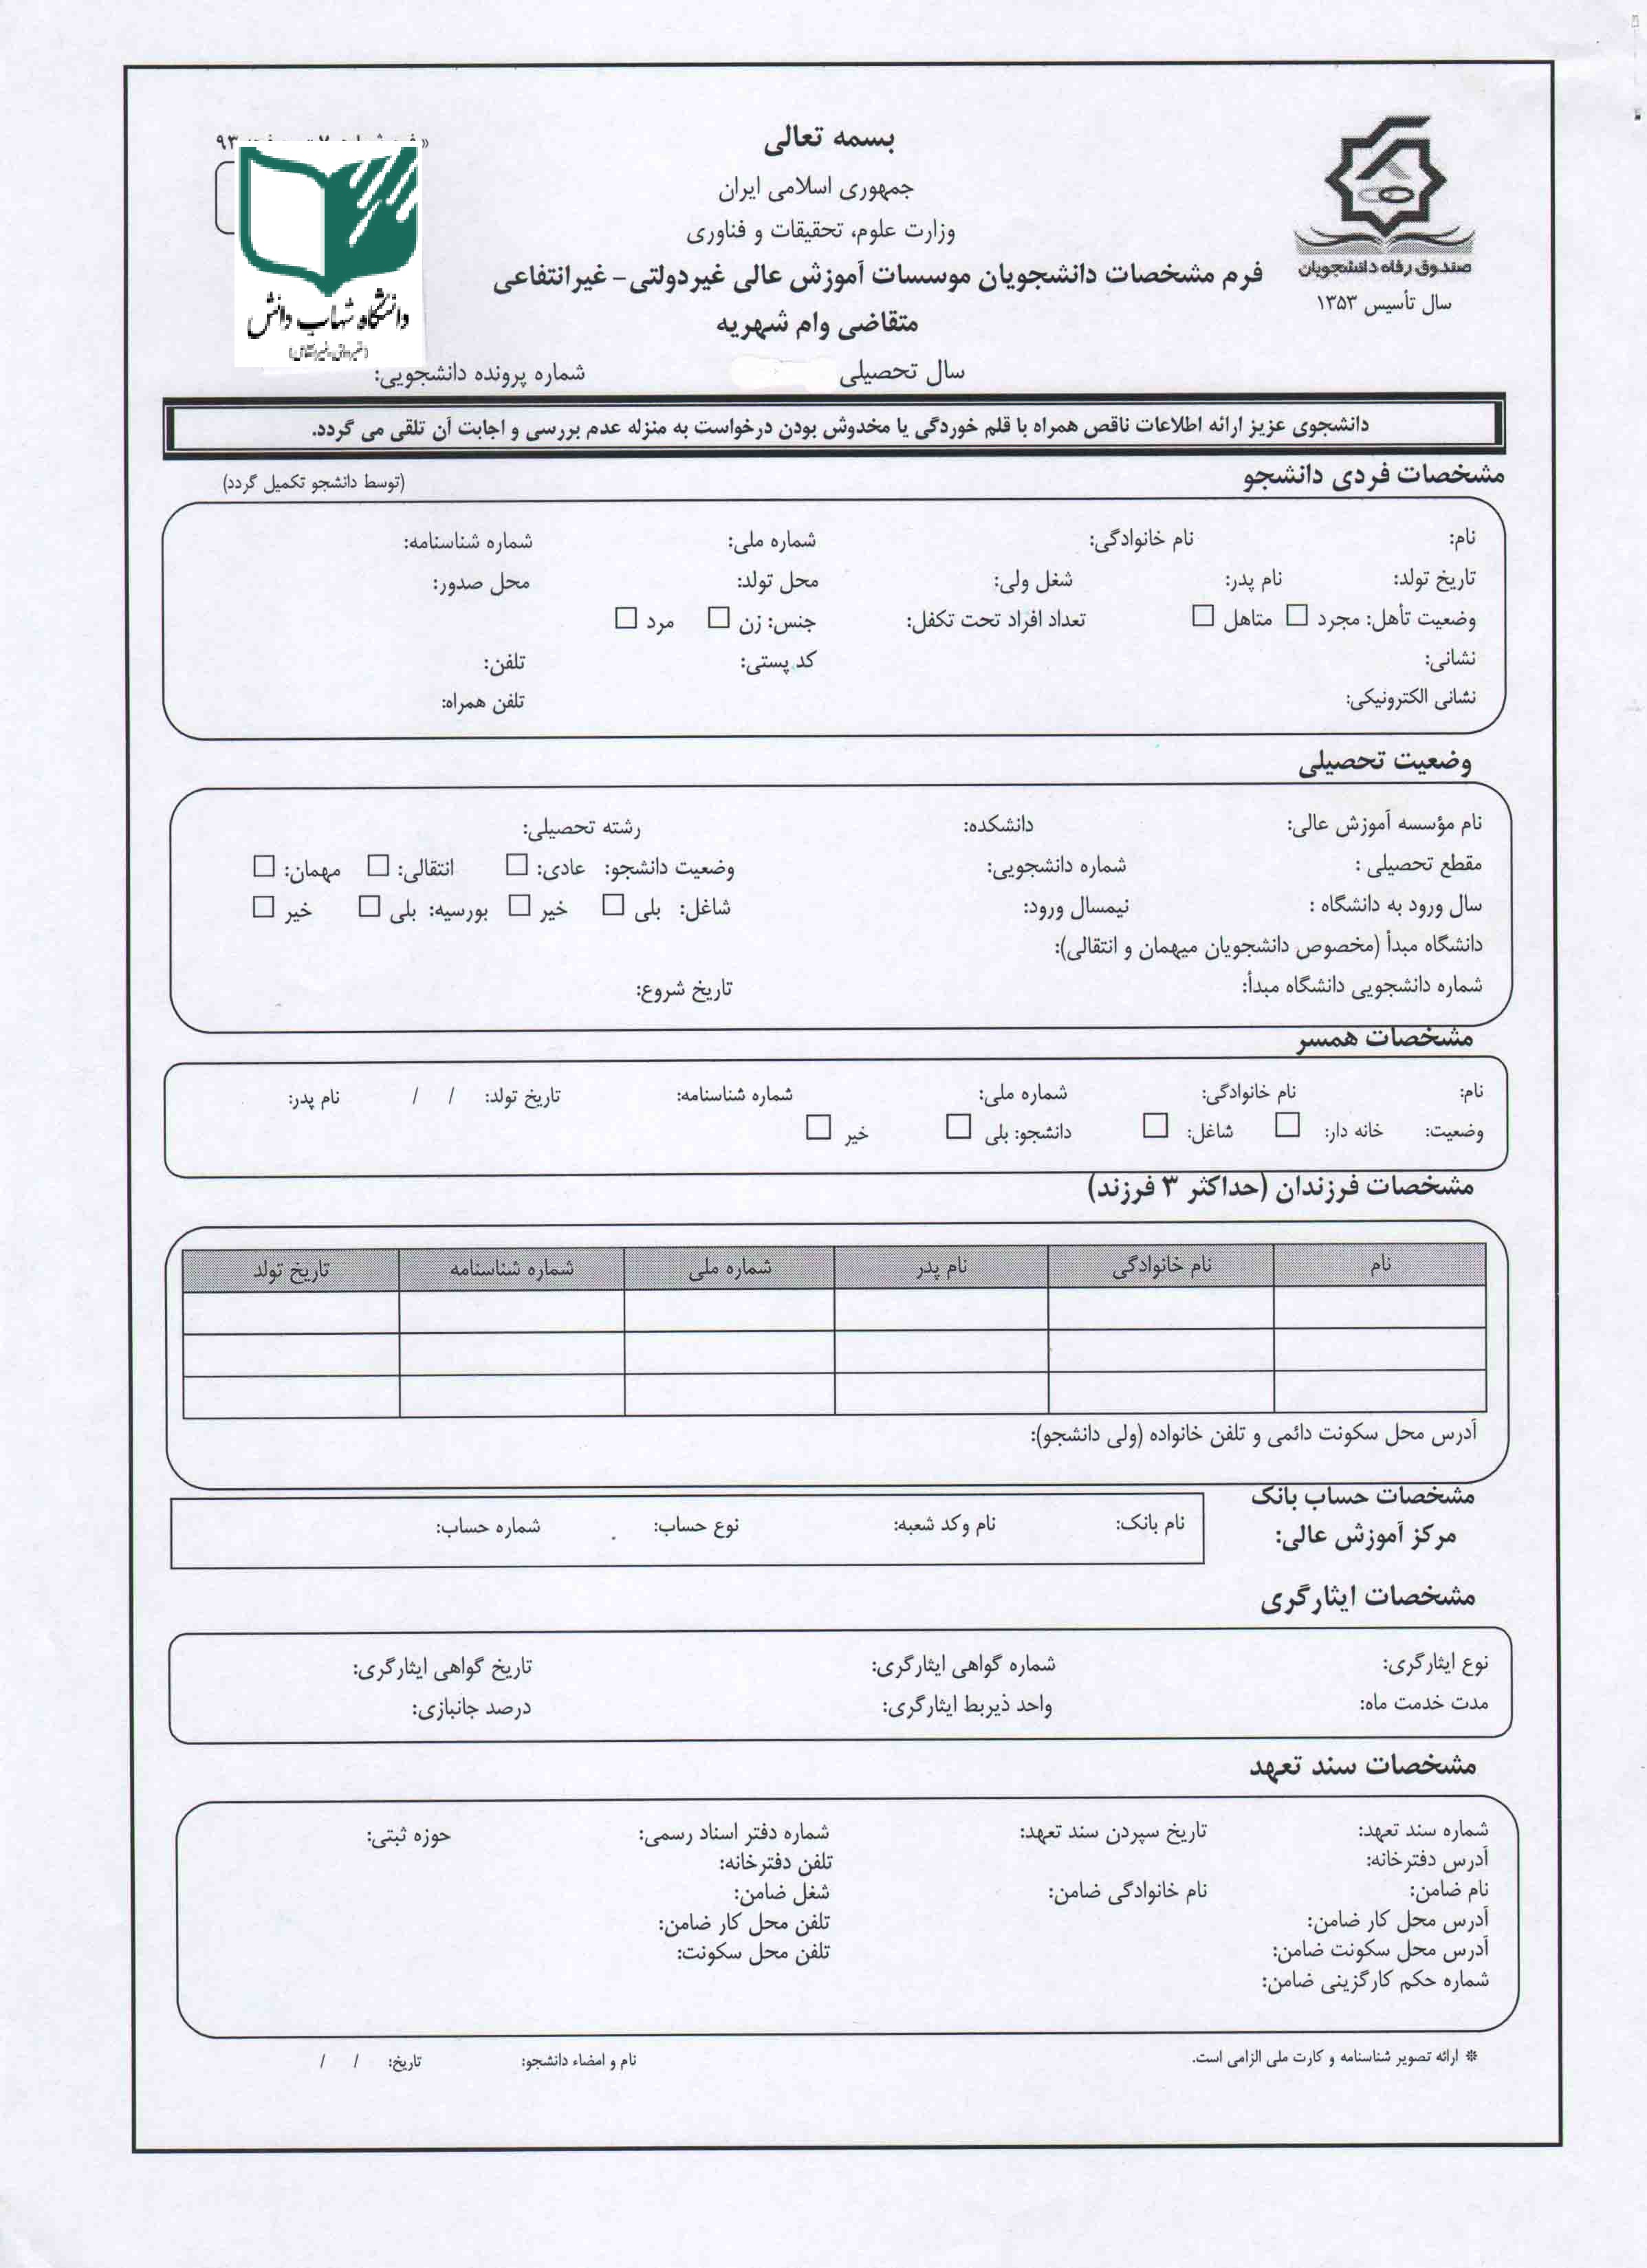 بسمه تعالی
جمهوری اسلامی ایران
وزارت علوم، تحقیقات و فناوری
فرم مشخصات دانشجویان موسسات آموزش عالی غیردولتی-غیرانتفاعی
متقاضی وام شهریه
صندوق رفاه دانشجویان
سال تأسیس ۱۳۵۳
۹۳
دانشگاه شهاب دانش
سال تحصیلی شماره پرونده دانشجویی:
دانشجوی عزیز ارائه اطلاعات ناقص همراه با قلم خوردگی یا مخدوش بودن درخواست به منزله عدم بررسی و اجابت آن تلقی می گردد.
مشخصات فردی دانشجو (توسط دانشجو تکمیل گردد)
نام: نام خانوادگی: شماره ملی: شماره شناسنامه:
تاریخ تولد: نام پدر: شغل ولی: محل تولد: محل صدور:
وضعیت تأهل: مجرد □ متاهل □ تعداد افراد تحت تکفل: جنس: زن □ مرد □
نشانی: کد پستی: تلفن:
نشانی الکترونیکی: تلفن همراه:
وضعیت تحصیلی
نام مؤسسه آموزش عالی: دانشکده: رشته تحصیلی:
مقطع تحصیلی : شماره دانشجویی: وضعیت دانشجو: عادی: □ انتقالی: □ مهمان: □
سال ورود به دانشگاه : نیمسال ورود: شاغل: بلی □ خیر □ بورسیه: بلی □ خیر □
دانشگاه مبدأ (مخصوص دانشجویان میهمان و انتقالی):
شماره دانشجویی دانشگاه مبدأ: تاریخ شروع:
مشخصات همسر
نام: نام خانوادگی: شماره ملی: شماره شناسنامه: تاریخ تولد: / / نام پدر:
وضعیت: خانه دار: □ شاغل: □ دانشجو: بلی □ خیر □
مشخصات فرزندان (حداکثر ۳ فرزند)
نام نام خانوادگی نام پدر شماره ملی شماره شناسنامه تاریخ تولد
آدرس محل سکونت دائمی و تلفن خانواده (ولی دانشجو):
مشخصات حساب بانک
مرکز آموزش عالی:
نام بانک: نام وکد شعبه: نوع حساب: شماره حساب:
مشخصات ایثارگری
نوع ایثارگری: شماره گواهی ایثارگری: تاریخ گواهی ایثارگری:
مدت خدمت ماه: واحد ذیربط ایثارگری: درصد جانبازی:
مشخصات سند تعهد
شماره سند تعهد: تاریخ سپردن سند تعهد: شماره دفتر اسناد رسمی: حوزه ثبتی:
آدرس دفترخانه: تلفن دفترخانه:
نام ضامن: نام خانوادگی ضامن: شغل ضامن:
آدرس محل کار ضامن: تلفن محل کار ضامن:
آدرس محل سکونت ضامن: تلفن محل سکونت:
شماره حکم کارگزینی ضامن:
※ ارائه تصویر شناسنامه و کارت ملی الزامی است. نام و امضاء دانشجو: تاریخ: / /